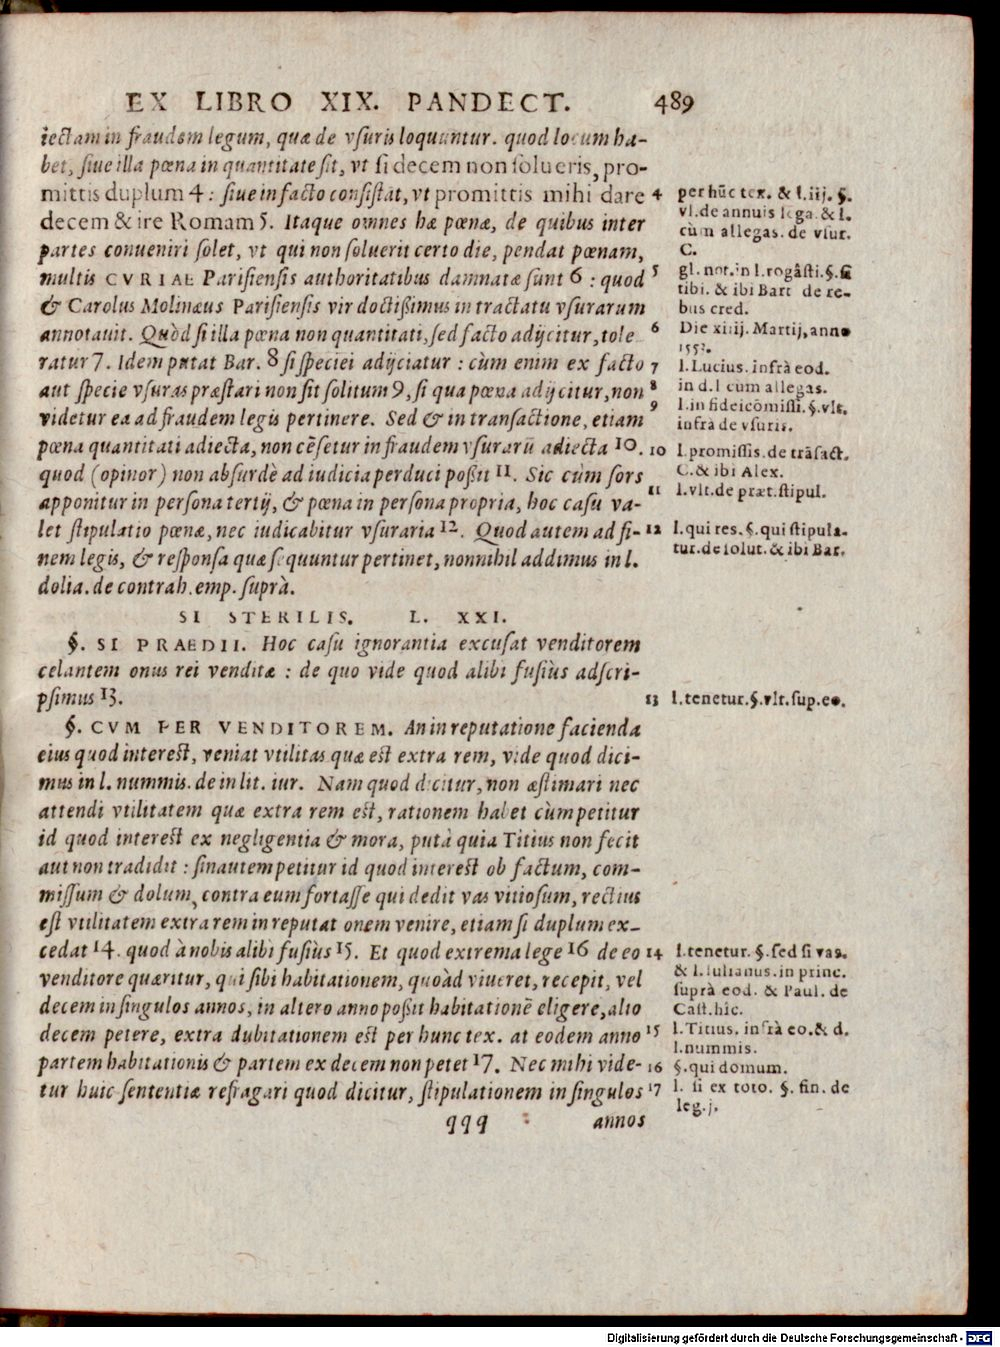 EX LIBRO XIX. PANDECT. 489
iectam in fraudem legum, quæ de vsuris loquuntur. quod locum ha-
bet, siue illa pœna in quantitate sit, vt si decem non solueris, pro-
mittis duplum 4 : siue in facto consistat, vt promittis mihi dare
decem & ire Romam 5. Itaque omnes hæ pœnæ, de quibus inter
partes conueniri solet, vt qui non soluerit certo die, pendat pœnam,
multis CVRIAE Parisiensis authoritatibus damnatæ sunt 6 : quod
& Carolus Molinæus Parisiensis vir doctißimus in tractatu vsurarum
annotauit. Quòd si illa pœna non quantitati, sed facto adijcitur, tole
ratur 7. Idem putat Bar. 8 si speciei adijciatur : cùm enim ex facto
aut specie vsuras præstari non sit solitum 9, si qua pœna adijcitur, non
videtur ea ad fraudem legis pertinere. Sed & in transactione, etiam
pœna quantitati adiecta, non cẽsetur in fraudem vsurarū adiecta 10.
quod (opinor) non absurdè ad iudicia perduci poßit 11. Sic cùm sors
apponitur in persona tertij, & pœna in persona propria, hoc casu va-
let stipulatio pœnæ, nec iudicabitur vsuraria 12. Quod autem ad fi-
nem legis, & responsa quæ sequuntur pertinet, nonnihil addimus in l.
dolia. de contrah. emp. suprà.
SI STERILIS. L. XXI.
§. SI PRAEDII. Hoc casu ignorantia excusat venditorem
celantem onus rei venditæ : de quo vide quod alibi fusiùs adscri-
psimus 13.
§. CVM PER VENDITOREM. An in reputatione facienda
eius quod interest, veniat vtilitas quæ est extra rem, vide quod dici-
mus in l. nummis. de in lit. iur. Nam quod dicitur, non æstimari nec
attendi vtilitatem quæ extra rem est, rationem habet cùm petitur
id quod interest ex negligentia & mora, putà quia Titius non fecit
aut non tradidit : sin autem petitur id quod interest ob factum, com-
missum & dolum, contra eum fortasse qui dedit vas vitiosum, rectius
est vtilitatem extra rem in reputationem venire, etiam si duplum ex-
cedat 14. quod à nobis alibi fusiùs 15. Et quod extrema lege 16 de eo
venditore quæritur, qui sibi habitationem, quoàd viueret, recepit, vel
decem in singulos annos, in altero anno poßit habitationē eligere, alio
decem petere, extra dubitationem est per hunc tex. at eodem anno
partem habitationis & partem ex decem non petet 17. Nec mihi vide-
tur huic sententiæ refragari quod dicitur, stipulationem in singulos
qqq annos
4 per hūc tex. & l. iij. §.
vl. de annuis lega. & l.
cùm allegas. de vsur.
C.
5 gl. not. in l. rogâsti. §. si
tibi. & ibi Bart de re-
bus cred.
6 Die xiiij. Martij, anno
1552.
7 l. Lucius. infrà eod.
8 in d. l cum allegas.
9 l. in fideicōmissi. §. vlt.
infrà de vsuris.
10 l. promissis. de trāsact.
C. & ibi Alex.
11 l. vlt. de præt. stipul.
12 l. qui res. §. qui stipula-
tur. de solut. & ibi Bar.
13 l. tenetur. §. vlt. sup. eo.
14 l. tenetur. §. sed si vas.
& l. Iulianus. in princ.
suprà eod. & Paul. de
Cast. hîc.
15 l. Titius. infrà eo. & d.
l. nummis.
16 §. qui domum.
17 l. si ex toto. §. fin. de
leg. j.
Digitalisierung gefördert durch die Deutsche Forschungsgemeinschaft - DFG